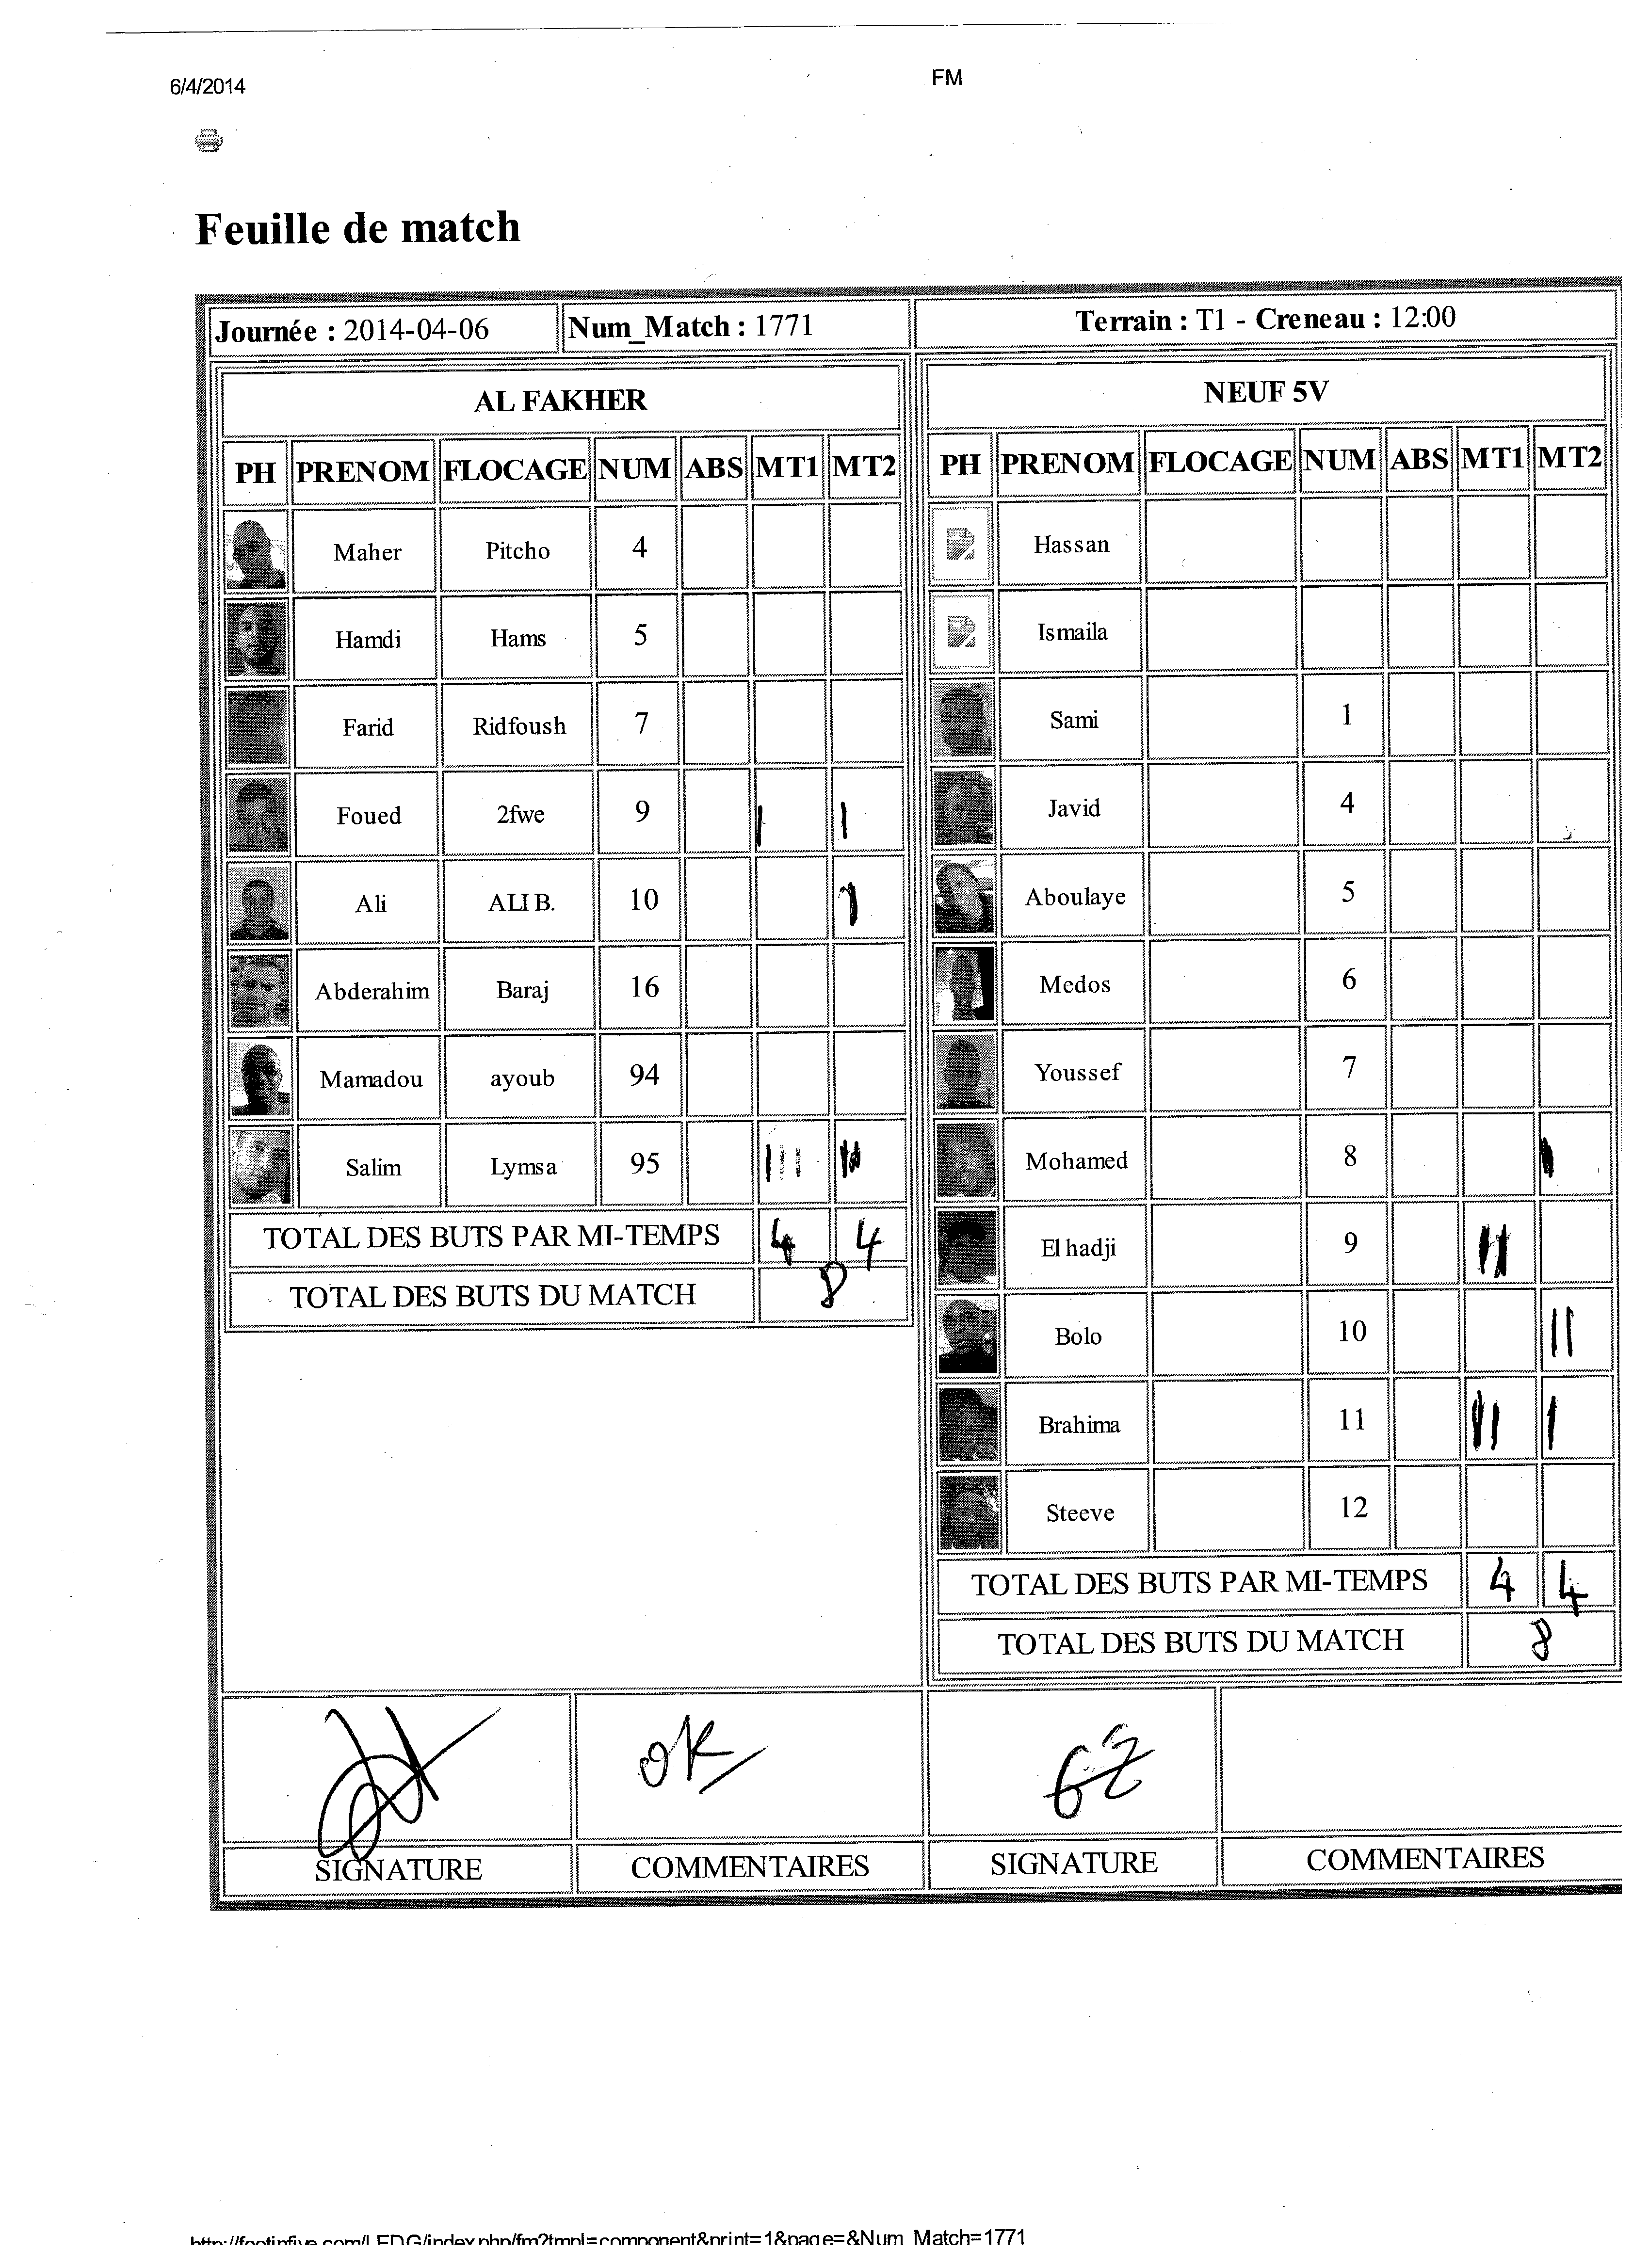 6/4/2014
FM
Feuille de match
Journée : 2014-04-06 Num_Match : 1771 Terrain : T1 - Creneau : 12:00
AL FAKHER
PH PRENOM FLOCAGE NUM ABS MT1 MT2
Maher Pitcho 4
Hamdi Hams 5
Farid Ridfoush 7
Foued 2fwe 9 | |
Ali ALI B. 10 |
Abderahim Baraj 16
Mamadou ayoub 94
Salim Lymsa 95 ||| ||
TOTAL DES BUTS PAR MI-TEMPS 4 4
TOTAL DES BUTS DU MATCH 8
NEUF 5V
PH PRENOM FLOCAGE NUM ABS MT1 MT2
Hassan
Ismaila
Sami 1
Javid 4
Aboulaye 5
Medos 6
Youssef 7
Mohamed 8 |
El hadji 9 ||
Bolo 10 ||
Brahima 11 || |
Steeve 12
TOTAL DES BUTS PAR MI-TEMPS 4 4
TOTAL DES BUTS DU MATCH 8
OK
SIGNATURE COMMENTAIRES SIGNATURE COMMENTAIRES
http://footinfive.com/LFDG/index.php/fm?tmpl=component&print=1&page=&Num_Match=1771